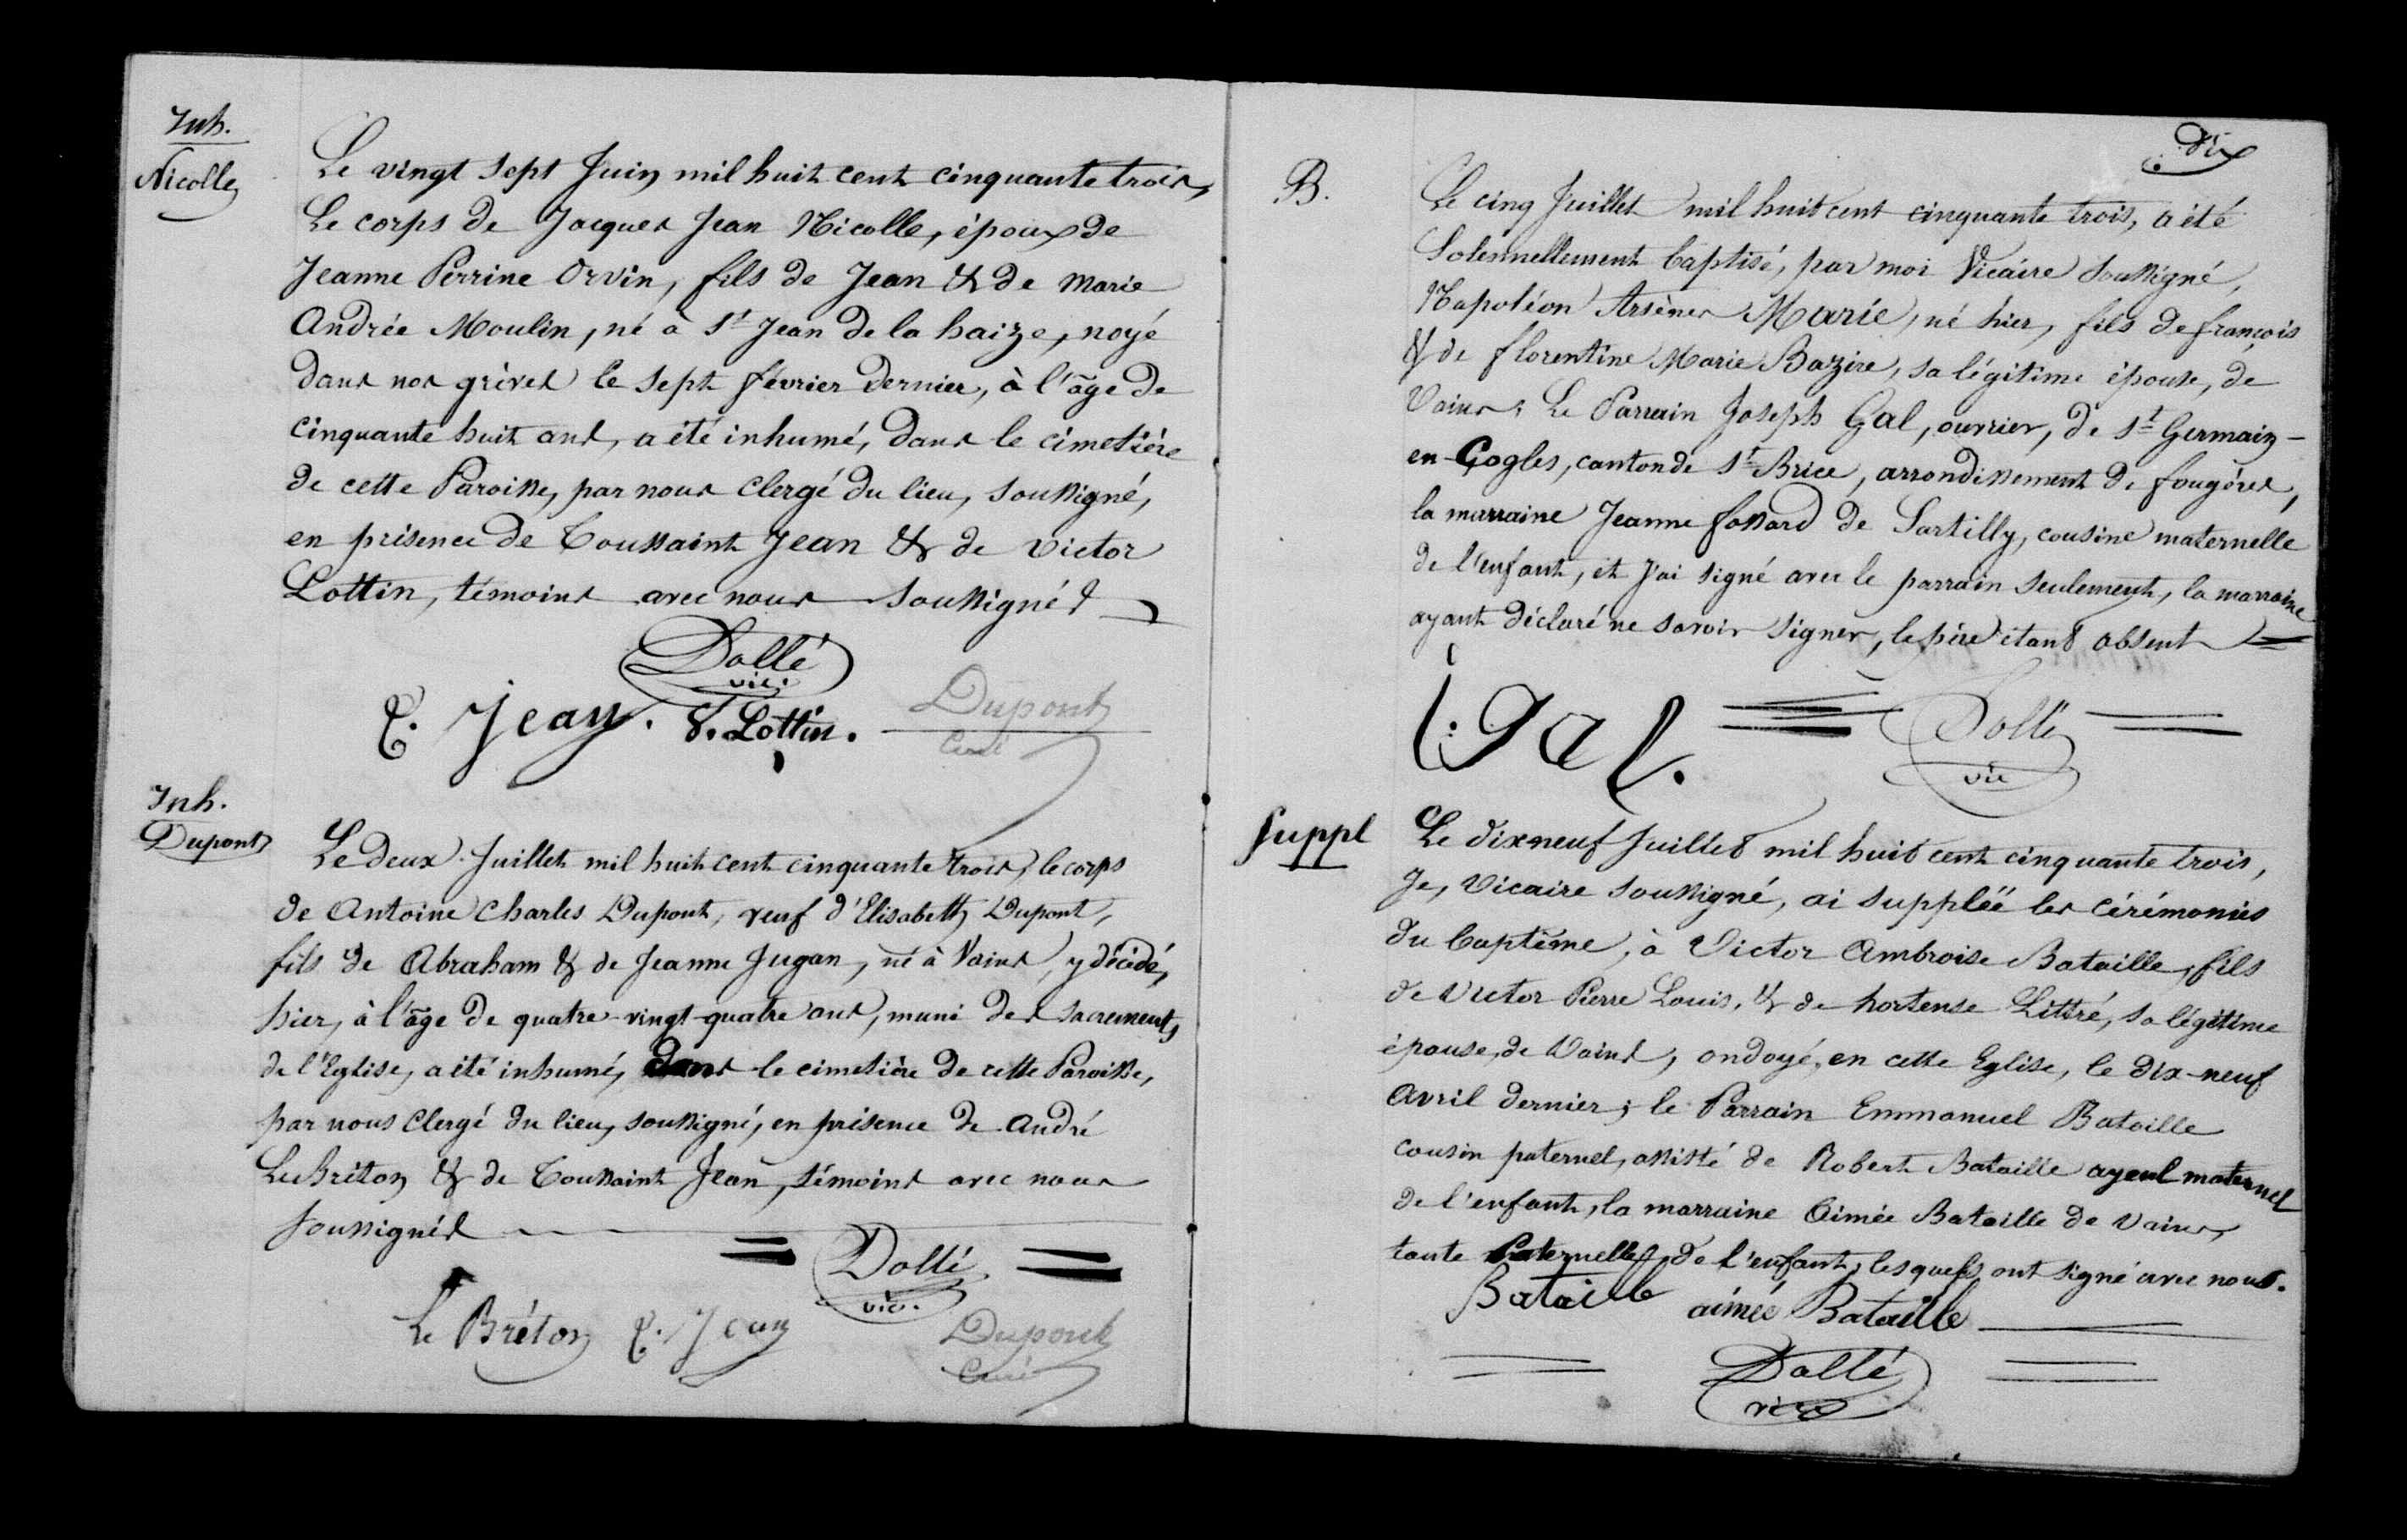 Inh.
Nicolle
Le vingt sept Juin mil huit cent cinquante trois,
Le corps de Jacques Jean Nicolle, époux de
Jeanne Perrine Orvin, fils de Jean & de Marie
Andrée Moulin, né à St Jean de la haize, noyé
dans nos grèves le sept février dernier, à l'âge de
cinquante huit ans, a été inhumé, dans le cimetière
de cette Paroisse, par nous Clergé du lieu, soussigné,
en présence de Toussaint Jean & de Victor
Lottin, témoins avec nous soussignés
Dollé
vic.
T. Jean. V. Lottin. Dupont
Curé
Inh.
Dupont
Le deux Juillet mil huit cent cinquante trois, le corps
de Antoine Charles Dupont, veuf d'Elisabeth Dupont,
fils de Abraham & de Jeanne Jugan, né à Vains, y décédé,
hier, à l'âge de quatre-vingt-quatre ans, muni des sacrements
de l'Eglise, a été inhumé, dans le cimetière de cette Paroisse,
par nous Clergé du lieu, soussigné, en présence de André
LeBréton & de Toussaint Jean, témoins avec nous
soussignés
Dollé
vic.
Le Bréton T. Jean Dupont
Curé
dix
B.
Le cinq Juillet mil huit cent cinquante trois, a été
Solennellement baptisé, par moi Vicaire soussigné,
Napoléon Arsène Marie, né hier, fils de françois
& de florentine Marie Bazire, sa légitime épouse, de
Vains; Le Parrain Joseph Gal, ouvrier, de St Germain-
en-Cogles, canton de St Brice, arrondissement de fougéres,
la marraine Jeanne fossard de Sartilly, cousine maternelle
de l'enfant, et j'ai signé avec le parrain seulement, la marraine
ayant déclaré ne savoir signer, le père étant absent
j. gal. Dollé
vic
Suppl
Le dix neuf Juillet mil huit cent cinquante trois,
Je, Vicaire soussigné, ai supplëé les cérémonies
du baptême, à Victor Ambroise Bataille, fils
de Victor Pierre Louis, & de hortense Littré, sa légitime
épouse, de Vains, ondoyé, en cette Eglise, le dix-neuf
Avril dernier; le Parrain Emmanuel Bataille
cousin paternel, assisté de Robert Bataille ayeul maternel
de l'enfant, la marraine Aimée Bataille de Vains,
tante Paternelle, de l'enfant, lesquels ont signé avec nous.
Bataille aimée Bataille
Dollé
vic